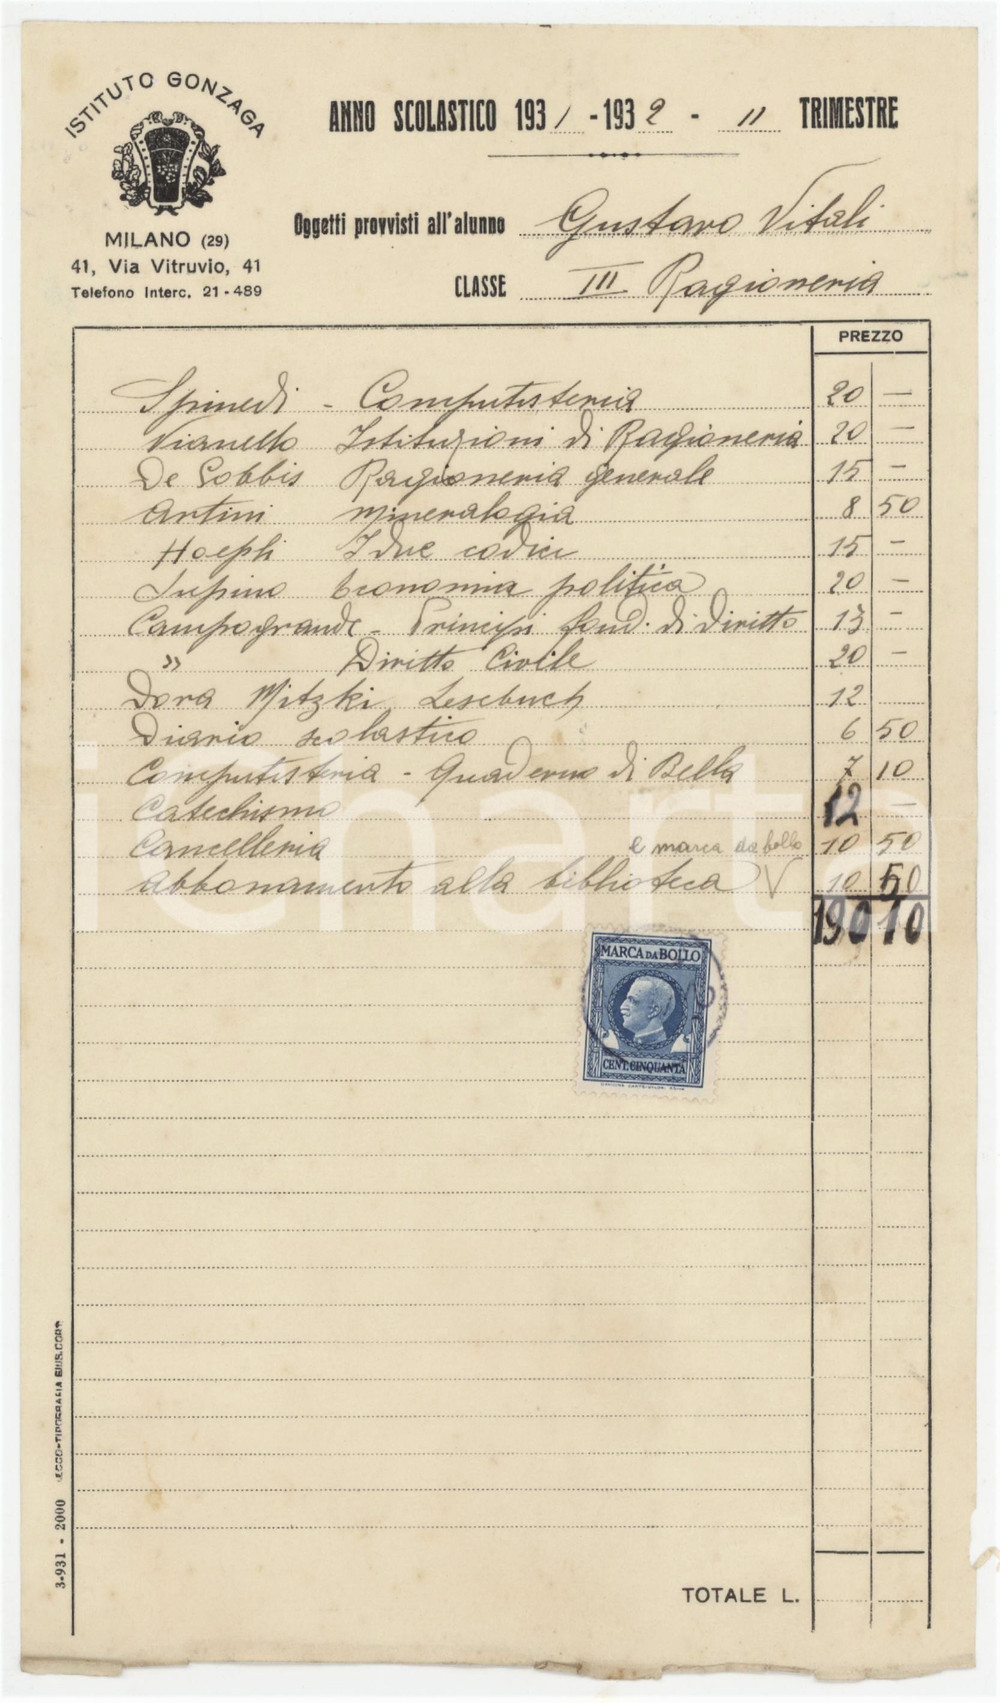 ISTITUTO GONZAGA
MILANO (29)
41, Via Vitruvio, 41
Telefono Interc. 21-489
ANNO SCOLASTICO 1931-1932 - II TRIMESTRE
Oggetti provvisti all'alunno Gustavo Vitali
CLASSE III Ragioneria
PREZZO
Spinedi - Computisteria 20 —
Vianello Istituzioni di Ragioneria 20 —
De Gobbis Ragioneria generale 15 —
Artini Mineralogia 8 50
Hoepli I due codici 15 —
Lupino Economia politica 20 —
Campogrande - Principi fond. di diritto 13 —
" Diritto Civile 20 —
Dora Mitzki Lesebuch 12
Diario scolastico 6 50
Computisteria - Quaderno di Bella 7 10
Catechismo 12 —
Cancelleria e marca da bollo 10 50
Abbonamento alla biblioteca V 10 50
190 10
MARCA DA BOLLO
CENT. CINQUANTA
TOTALE L.
3-931 - 2000